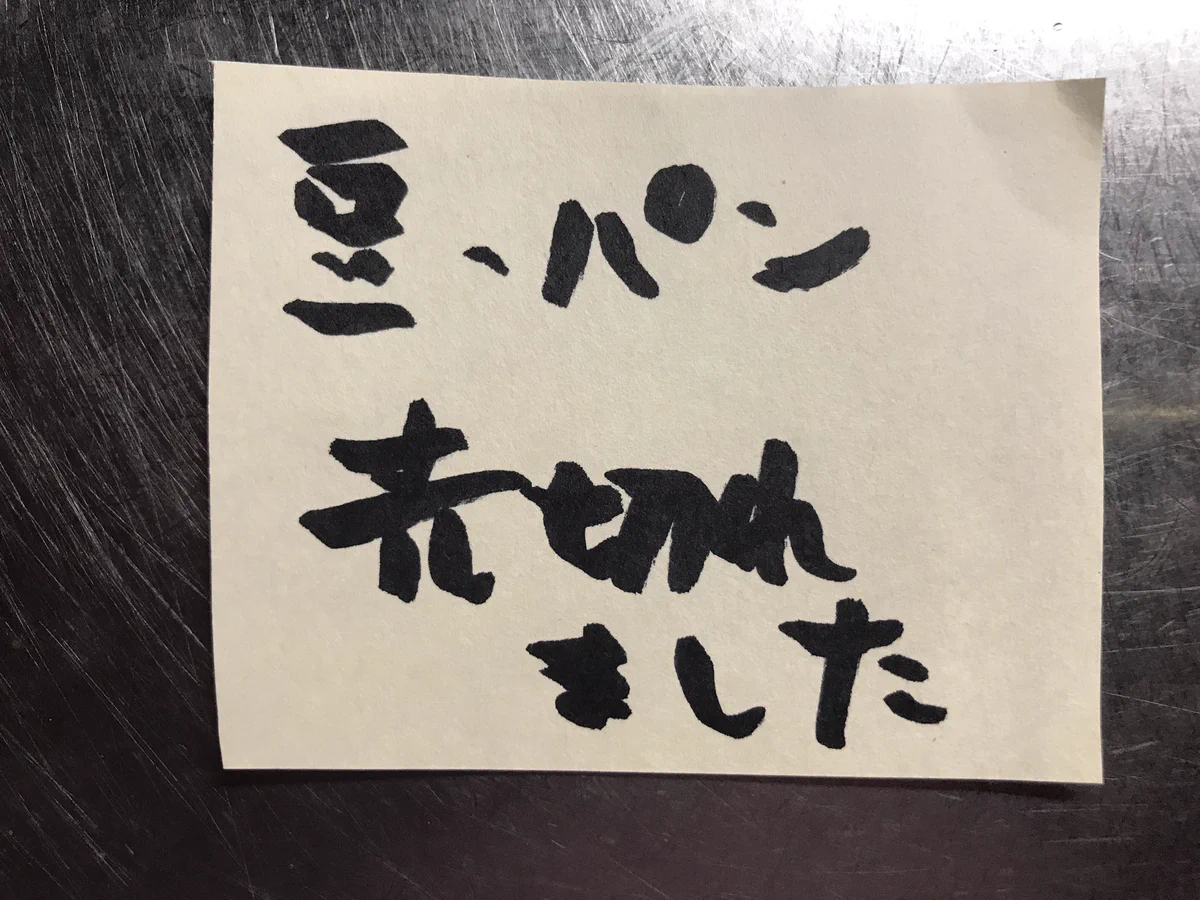 豆、パン
売切れ
ました